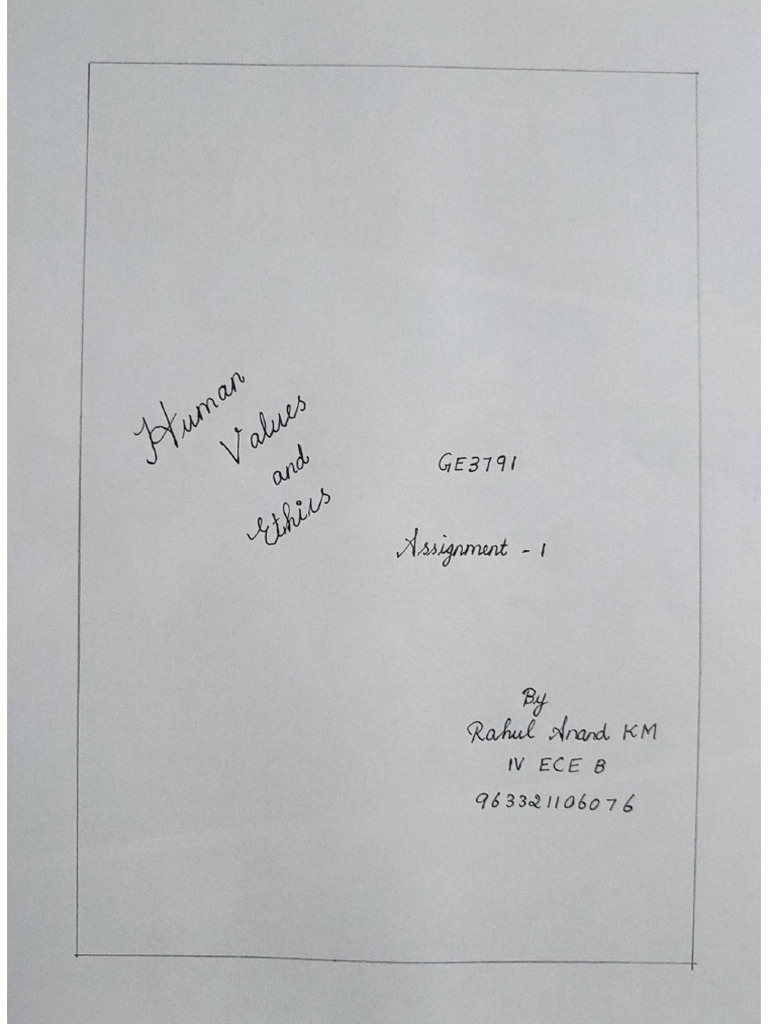 Human
Values
and
Ethics
GE3791
Assignment - 1
By
Rahul Anand KM
IV ECE B
963321106076